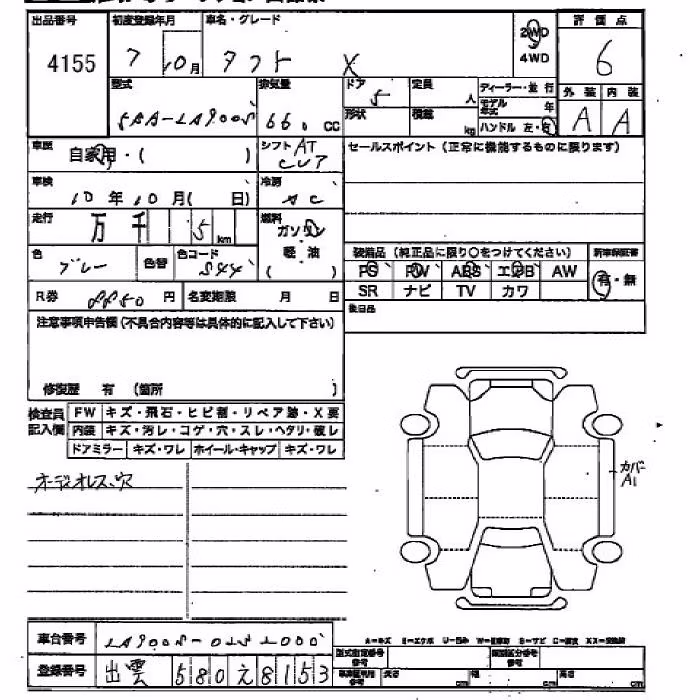 出品番号 4155
初度登録年月 7 10月
車名・グレード タフト X
2WD
4WD
評価点 6
型式 5BA-LA900S
排気量 660 CC
ドア 5
形状
定員 人
積載 kg
ディーラー・並行
モデル年式 年
ハンドル 左・右
外装 A
内装 A
車歴 自家用・( )
シフト AT CVT
セールスポイント (正常に機能するものに限ります)
車検 10年10月( 日)
冷房 AC
走行 万 千 5 km
燃料 ガソリン
軽油
( )
色 グレー
色替
色コード S44
装備品 (純正品に限り○をつけてください)
新車保証書
PS PW ABS エアB AW
有・無
SR ナビ TV カワ
R券 円
名変期限 月 日
後日品
注意事項申告欄 (不具合内容等は具体的に記入して下さい)
修復歴 有 (箇所 )
検査員記入欄
FW キズ・飛石・ヒビ割・リペア跡・X要
内装 キズ・汚レ・コゲ・穴・スレ・ヘタリ・破レ
ドアミラー キズ・ワレ ホイール・キャップ キズ・ワレ
オーディオレス、穴
カバー
A1
車台番号
登録番号 出雲 580 え 8153
長さ cm 幅 cm 高さ cm